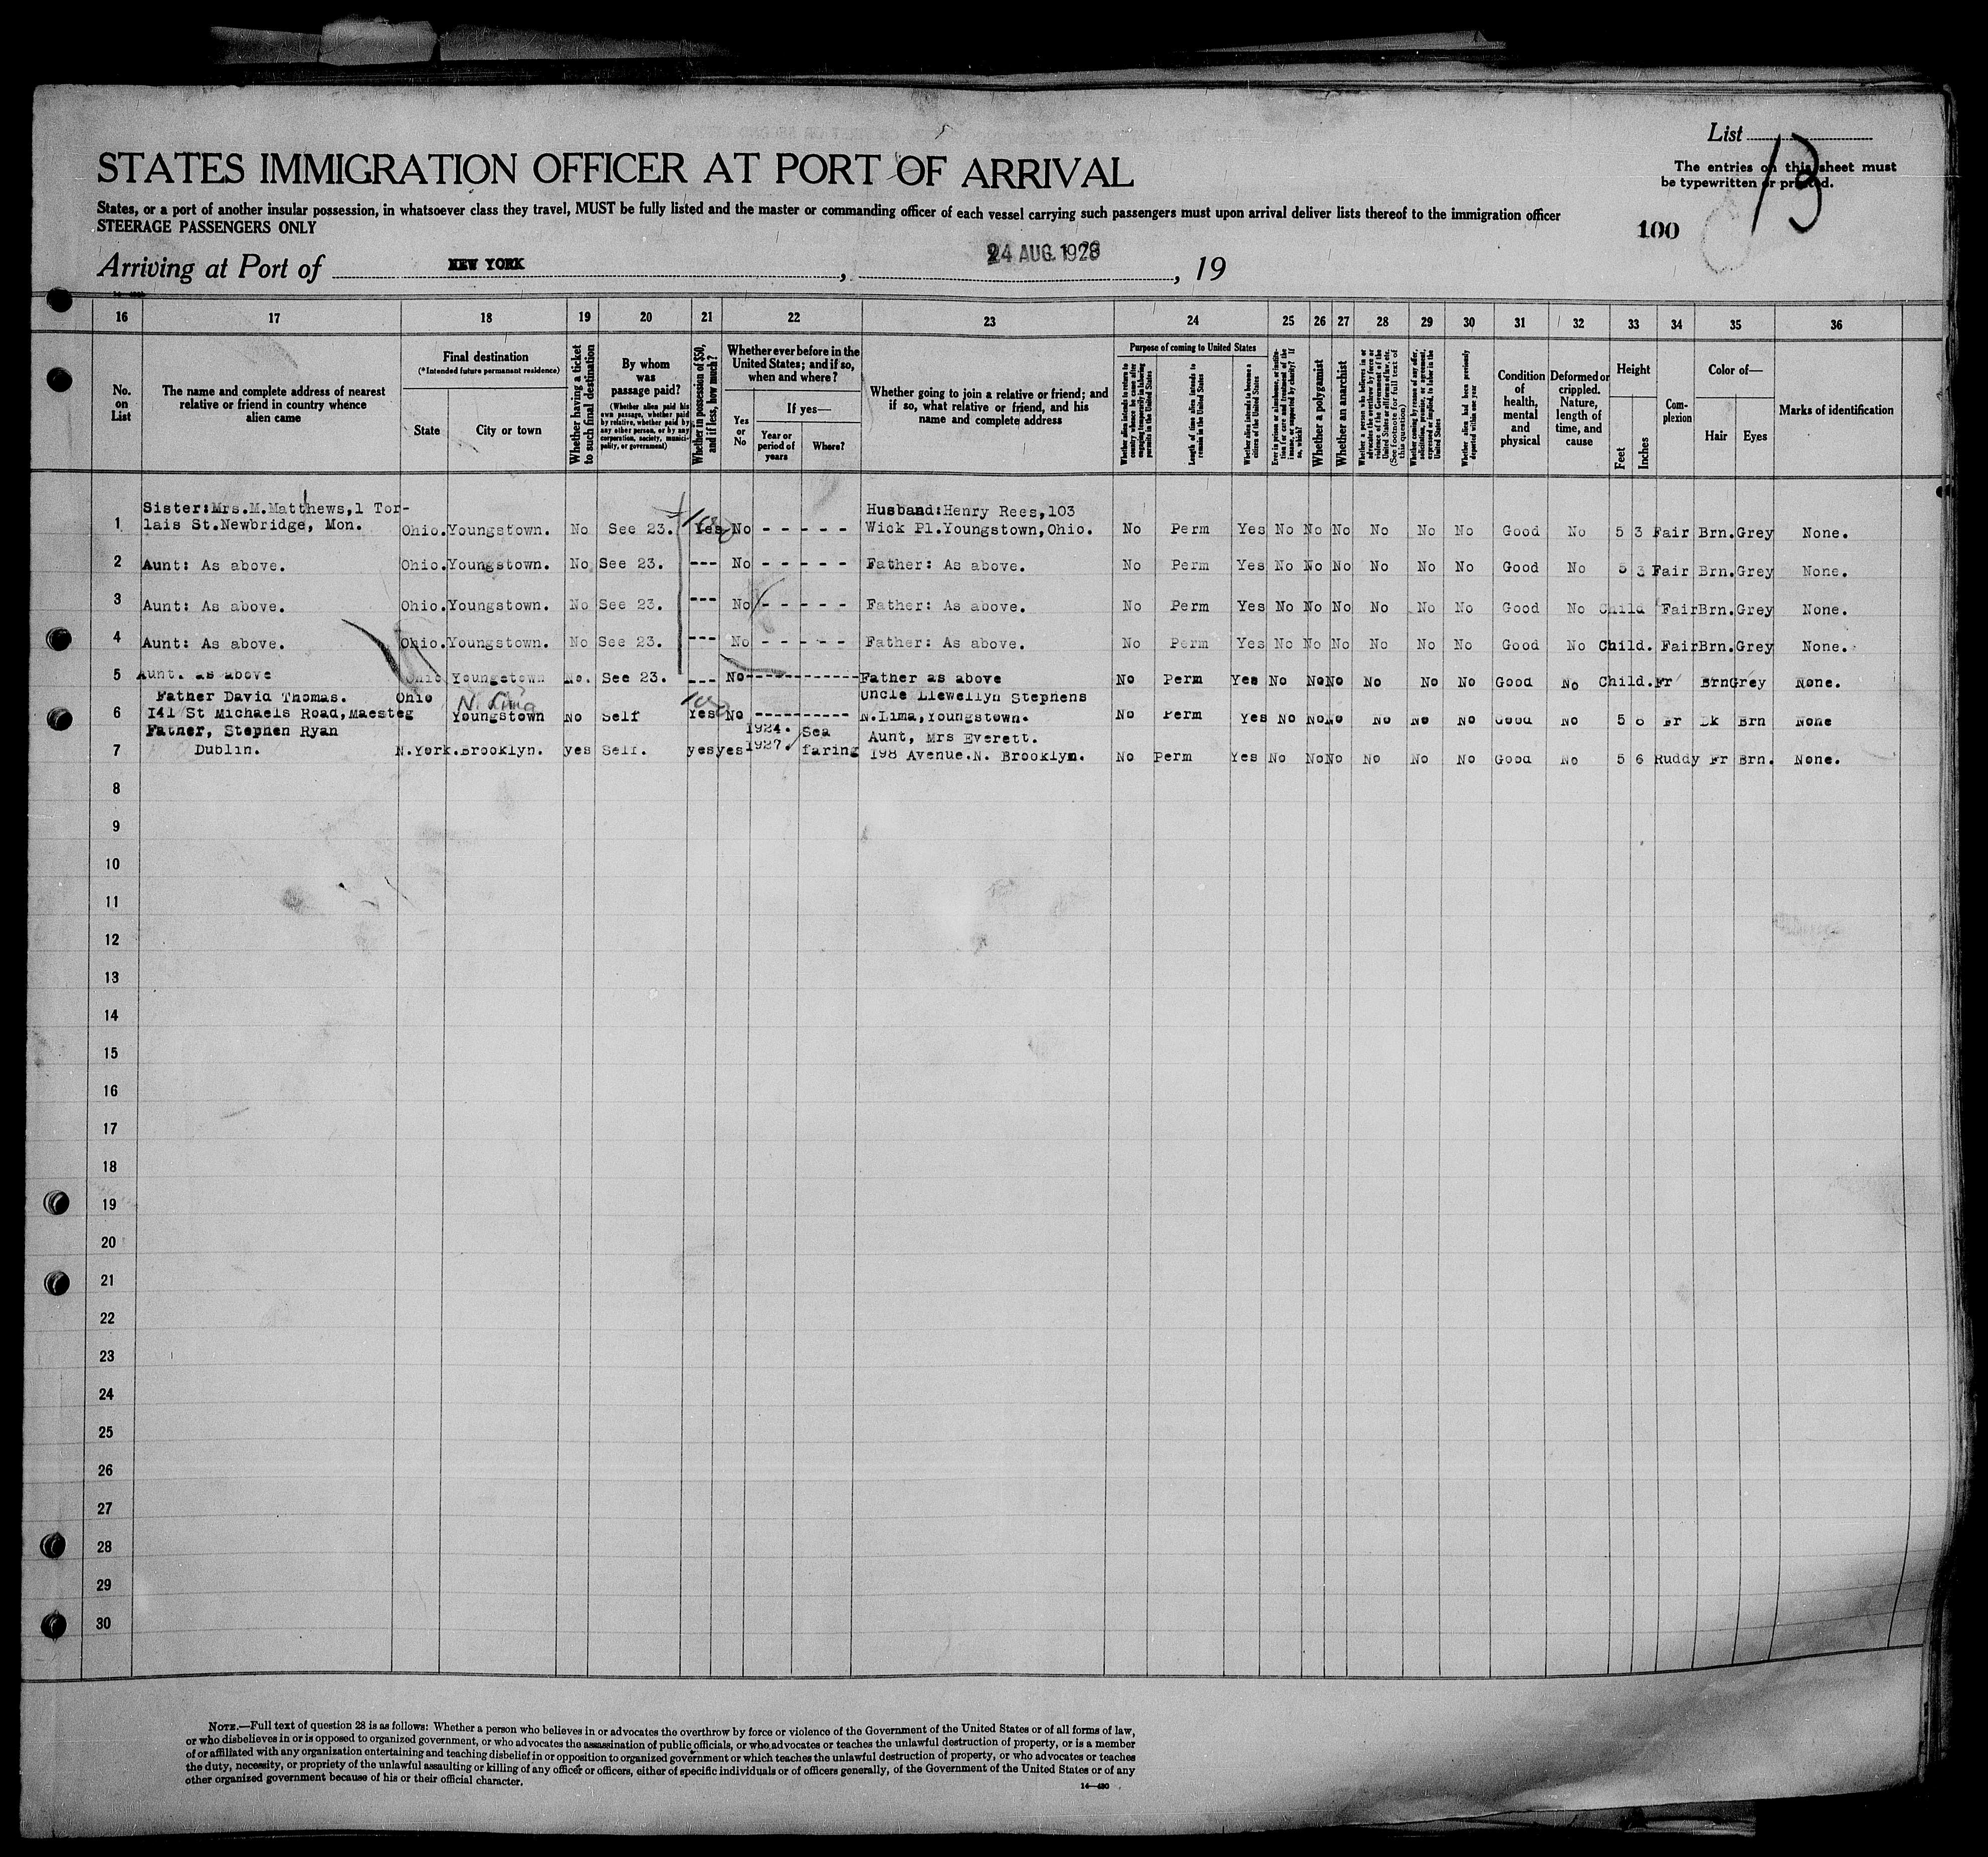 List
13
The entries on this sheet must
be typewritten or printed.
100
STATES IMMIGRATION OFFICER AT PORT OF ARRIVAL
States, or a port of another insular possession, in whatsoever class they travel, MUST be fully listed and the master or commanding officer of each vessel carrying such passengers must upon arrival deliver lists thereof to the immigration officer
STEERAGE PASSENGERS ONLY
Arriving at Port of NEW YORK, 24 AUG. 1928, 19
16 17 18 19 20 21 22 23 24 25 26 27 28 29 30 31 32 33 34 35 36
No. on List
The name and complete address of nearest relative or friend in country whence alien came
Final destination
(*Intended future permanent residence)
State
City or town
Whether having a ticket to such final destination
By whom was passage paid?
(Whether alien paid his own passage, whether paid by relative, whether paid by any other person, or by any corporation, society, municipality, or government)
Whether in possession of $50, and if less, how much?
Whether ever before in the United States; and if so, when and where?
Yes or No
If yes—
Year or period of years
Where?
Whether going to join a relative or friend; and if so, what relative or friend, and his name and complete address
Purpose of coming to United States
Whether alien intends to return to country whence he came after engaging temporarily in laboring pursuits in the United States
Length of time alien intends to remain in the United States
Whether alien intends to become a citizen of the United States
Ever in prison or almshouse, or institution for care and treatment of the insane, or supported by charity? If so, which?
Whether a polygamist
Whether an anarchist
Whether a person who believes in or advocates the overthrow by force or violence of the Government of the United States or all forms of law, etc. (See footnote for full text of this question)
Whether coming by reason of any offer, solicitation, promise, or agreement, expressed or implied, to labor in the United States
Whether alien had been previously deported within one year
Condition of health, mental and physical
Deformed or crippled. Nature, length of time, and cause
Height
Feet
Inches
Complexion
Color of—
Hair
Eyes
Marks of identification
Sister:Mrs.M.Matthews,1 Tor- Husband:Henry Rees,103
1 lais St.Newbridge, Mon. Ohio. Youngstown. No See 23. Yes No - - - - - Wick Pl.Youngstown,Ohio. No Perm Yes No No No No No No Good No 5 3 Fair Brn. Grey None.
2 Aunt: As above. Ohio. Youngstown. No See 23. --- No - - - - - Father: As above. No Perm Yes No No No No No No Good No 5 3 Fair Brn. Grey None.
3 Aunt: As above. Ohio. Youngstown. No See 23. --- No - - - - - Father: As above. No Perm Yes No No No No No No Good No Child Fair Brn. Grey None.
4 Aunt: As above. Ohio. Youngstown. No See 23. --- No - - - - - Father: As above. No Perm Yes No No No No No No Good No Child. Fair Brn. Grey None.
5 Aunt. as above Ohio Youngstown No. See 23. --- No------------ Father as above No Perm Yes No No No No No No Good No Child. Fr Brn Grey None.
Father David Thomas. Ohio N. Lima Uncle Llewellyn Stephens
6 141 St Michaels Road, Maesteg Youngstown No Self Yes No ---------- N.Lima,Youngstown. No Perm Yes No No No No No No Good No 5 8 Fr Dk Brn None
Father, Stephen Ryan 1924. Sea Aunt, Mrs Everett.
7 Dublin. N.York. Brooklyn. yes Self. yes yes 1927. faring 198 Avenue.N. Brooklyn. No Perm Yes No No No No No No Good No 5 6 Ruddy Fr Brn. None.
8
9
10
11
12
13
14
15
16
17
18
19
20
21
22
23
24
25
26
27
28
29
30
NOTE.—Full text of question 28 is as follows: Whether a person who believes in or advocates the overthrow by force or violence of the Government of the United States or of all forms of law,
or who disbelieves in or is opposed to organized government, or who advocates the assassination of public officials, or who advocates or teaches the unlawful destruction of property, or is a member
of or affiliated with any organization entertaining and teaching disbelief in or opposition to organized government or which teaches the unlawful destruction of property, or who advocates or teaches
the duty, necessity, or propriety of the unlawful assaulting or killing of any officer or officers, either of specific individuals or of officers generally, of the Government of the United States or of any
other organized government because of his or their official character.
14—480